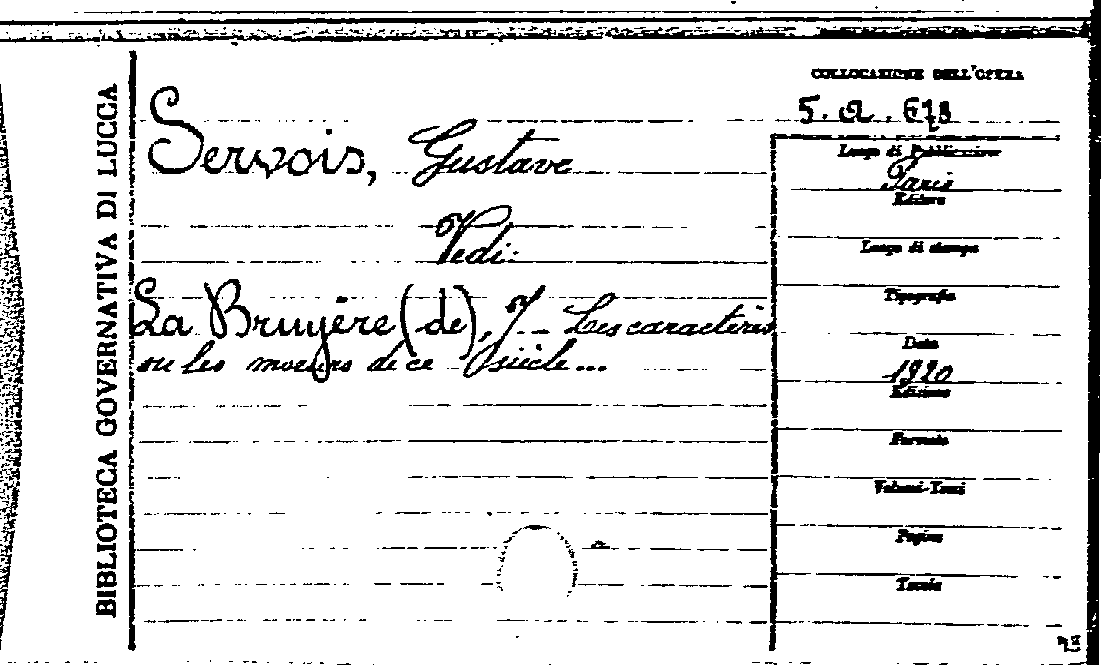 BIBLIOTECA GOVERNATIVA DI LUCCA
COLLOCAZIONE DELL'OPERA
5. a. 673
Servois, Gustave
Vedi:
La Bruyère (de), J. - Les caractères
ou les moeurs de ce siècle...
Luogo di Pubblicazione
Paris
Editore
Luogo di stampa
Tipografia
Data
1920
Edizione
Formato
Volumi-Tomi
Pagine
Tavole